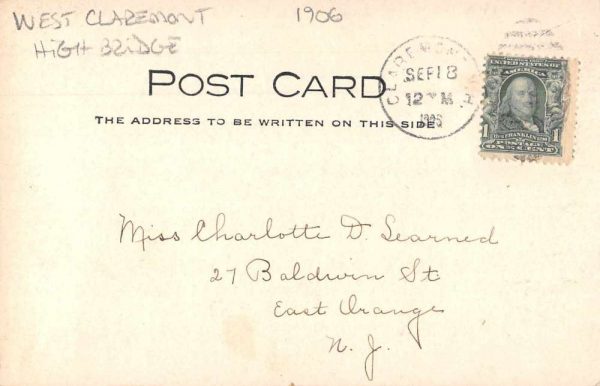 WEST CLAREMONT 1906
HIGH BRIDGE
POST CARD
THE ADDRESS TO BE WRITTEN ON THIS SIDE.
CLAREMONT
SEP 18
12 M
1906
SERIES 1902
UNITED STATES OF AMERICA
1 BENJ. FRANKLIN 1
POSTAGE
ONE CENT
Miss Charlotte D. Learned
27 Baldwin St
East Orange
N. J.